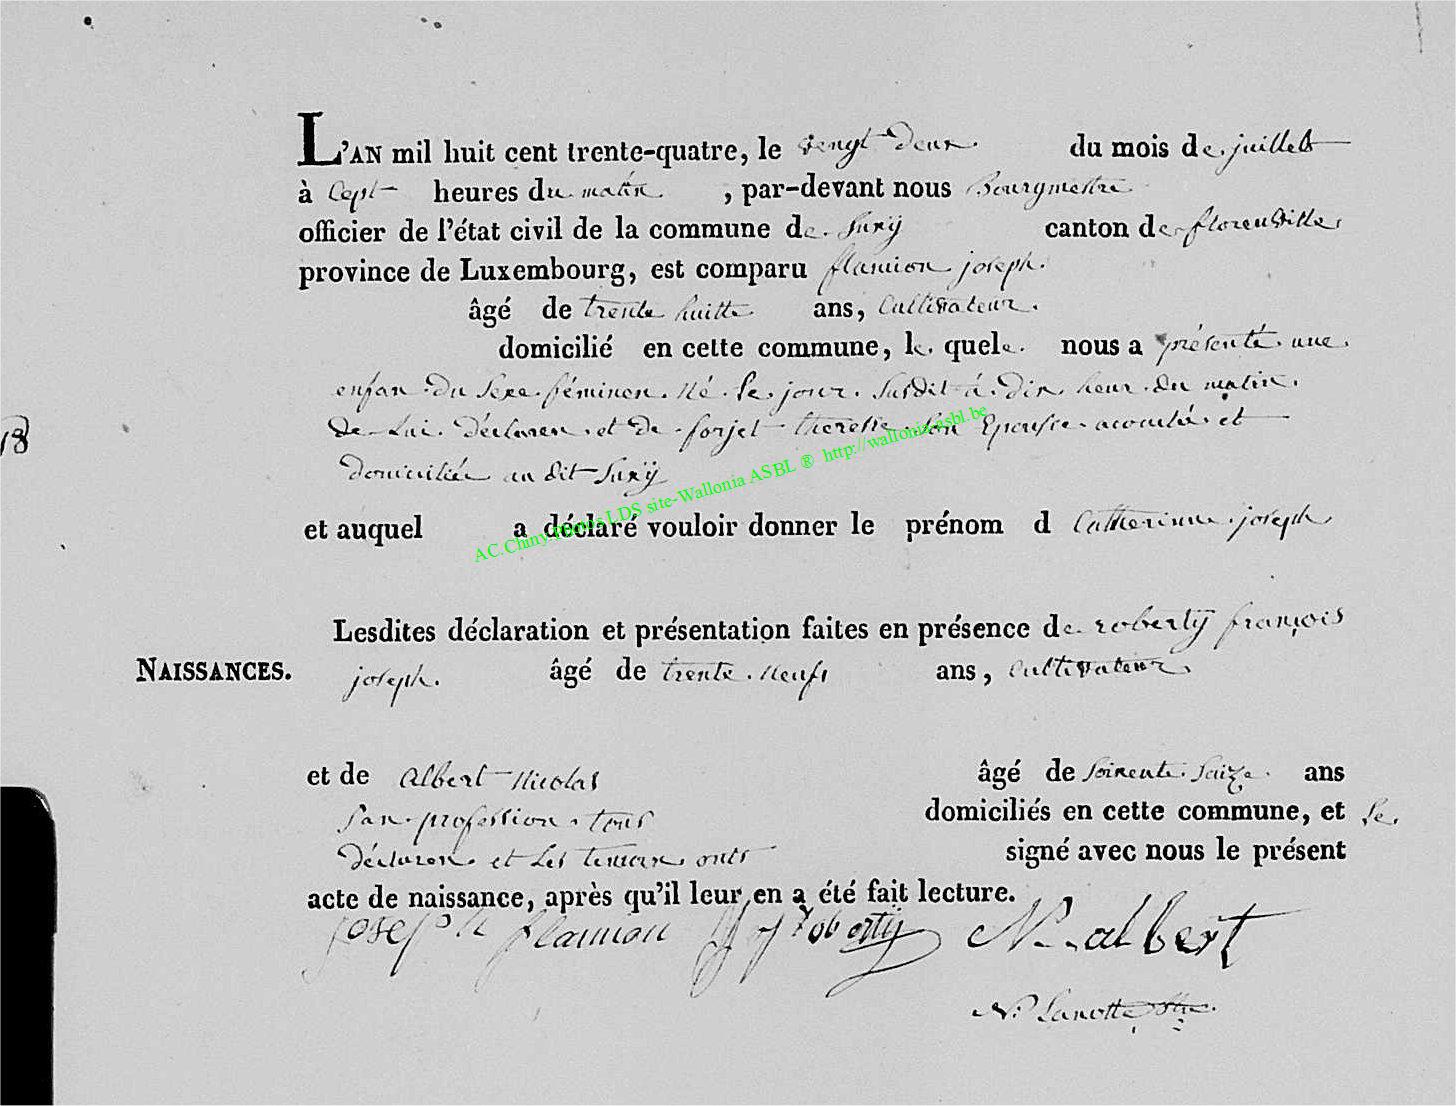 L'AN mil huit cent trente-quatre, le vengt deux du mois de juillets
à Cept heures du matin , par-devant nous Bourgmestre
officier de l'état civil de la commune de Suxÿ canton de florenville
province de Luxembourg, est comparu flamion joseph.
âgé de trente huitte ans, Cultivateur.
domicilié en cette commune, le quele nous a présenté une
enfan du sexe féminen né le jour susdit à dix heur du matin.
18
de Lui Déclaren et de forjet theresse son Epousse acoucÿée et
domiciliée au dit Suxÿ
AC.Chiny-Photos LDS site-Wallonia ASBL ® http://wallonia-asbl.be
et auquel a déclaré vouloir donner le prénom d Catherinne joseph
Lesdites déclaration et présentation faites en présence de robertÿ françois
NAISSANCES. joseph. âgé de trente neufs ans, Cultivateur.
et de Albert Nicolas âgé de soixente seize ans
san profession tous domiciliés en cette commune, et Le
déclaren et Les temoin onts signé avec nous le présent
acte de naissance, après qu'il leur en a été fait lecture.
joseph flamion ff j robertÿ N. albert
N. Lanotte